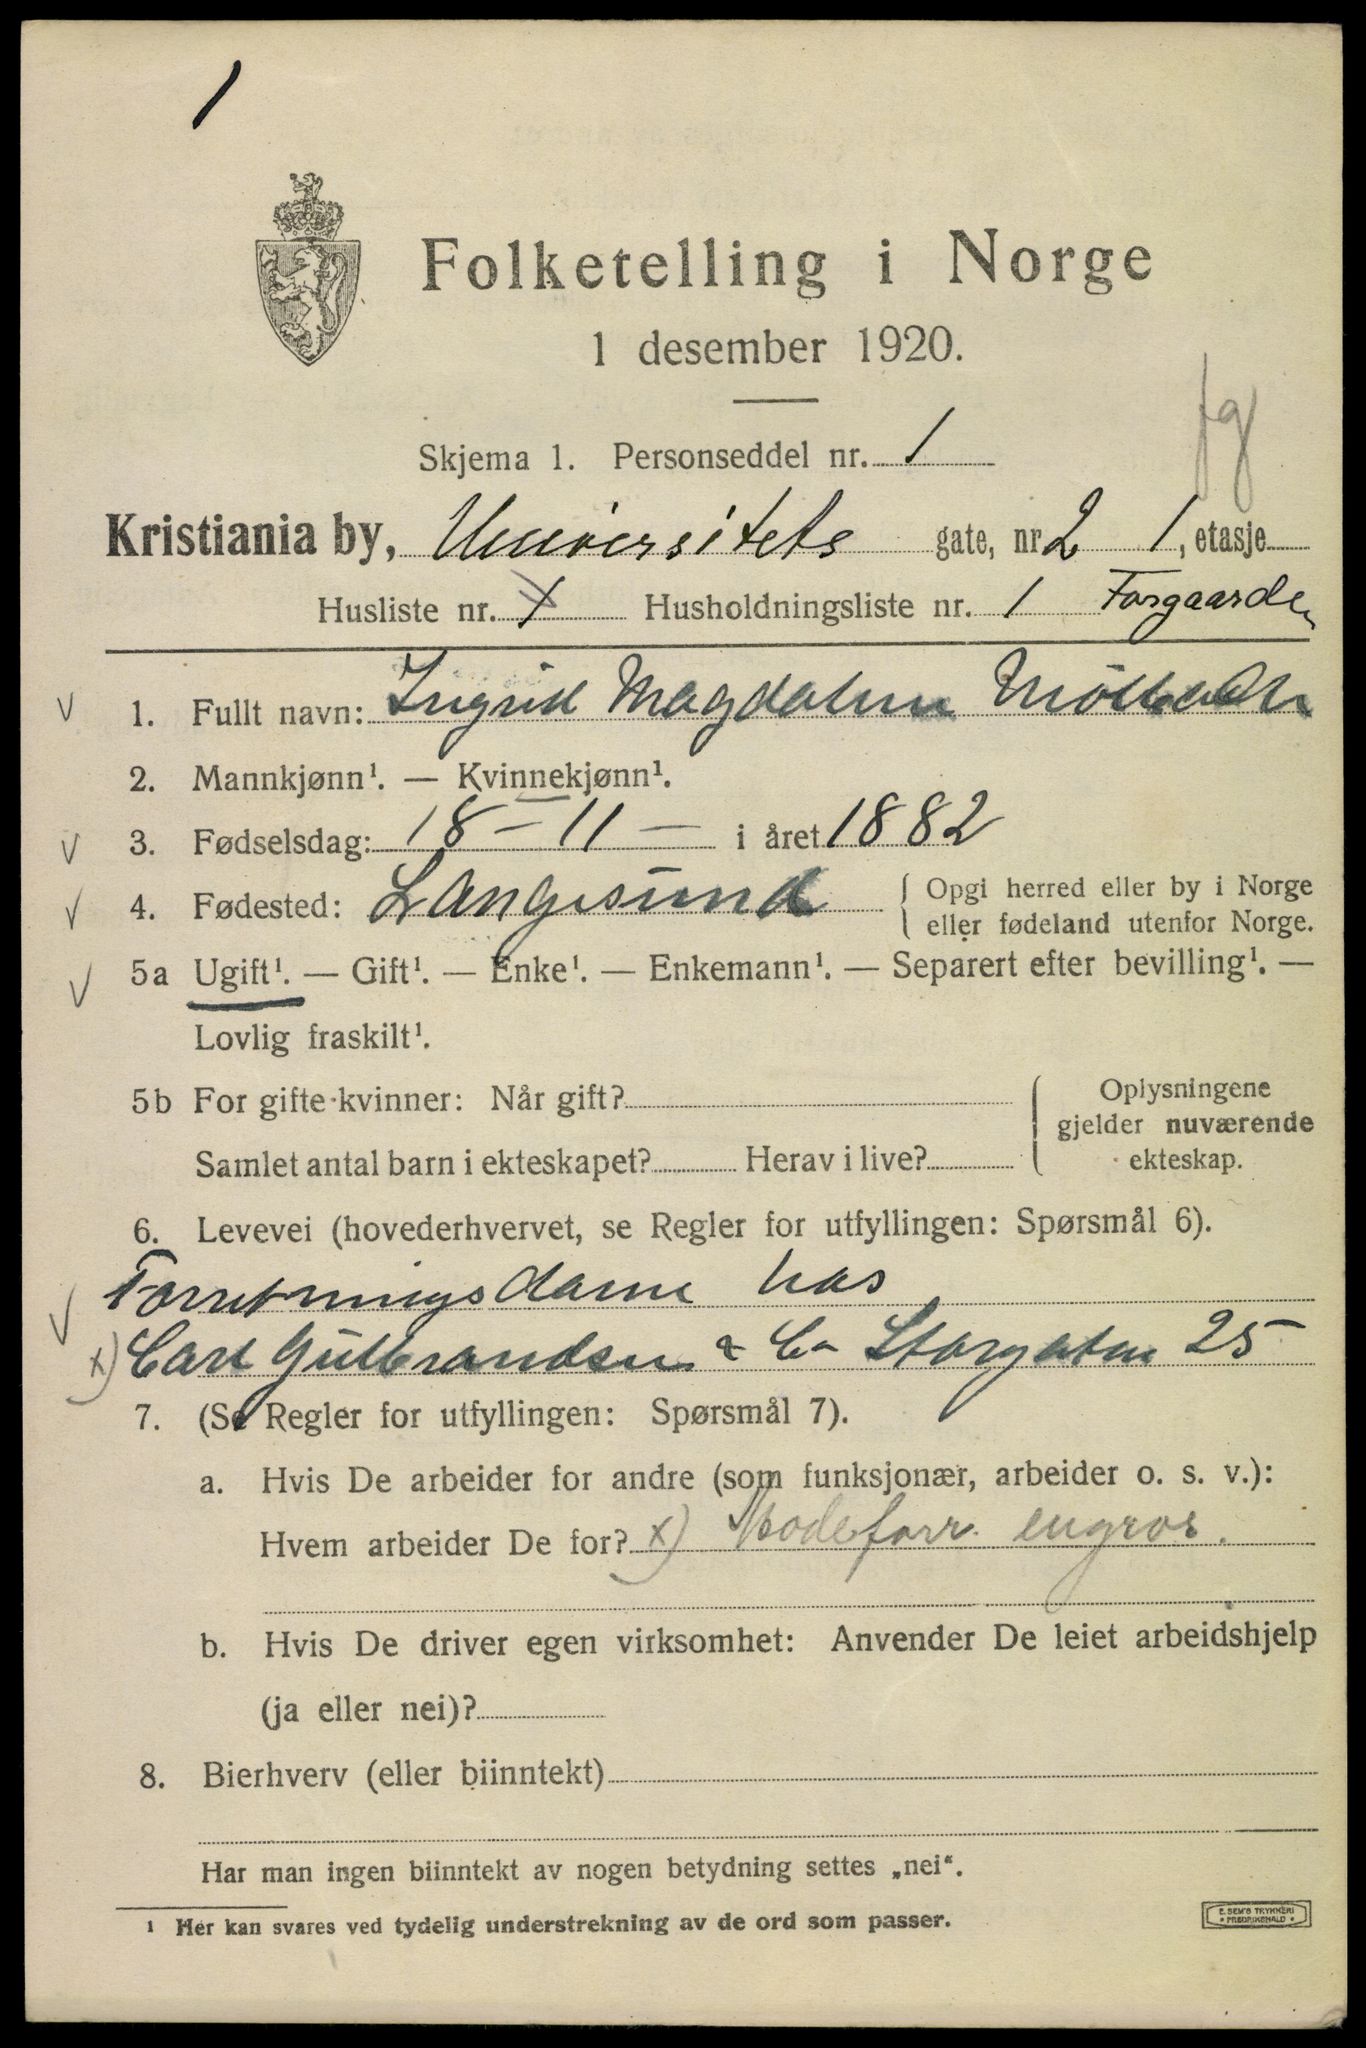 1
Folketelling i Norge
1 desember 1920.
Skjema 1. Personseddel nr. 1
fg
Kristiania by, Universitets gate, nr. 2 1, etasje
Husliste nr. 1 Husholdningsliste nr. 1 Forgaarden
1. Fullt navn: Ingrid Magdalene
2. Mannkjønn¹. — Kvinnekjønn¹.
3. Fødselsdag: 18 – 11 – i året 1882
4. Fødested: Langesund { Opgi herred eller by i Norge
eller fødeland utenfor Norge.
5a Ugift¹. — Gift¹. — Enke¹. — Enkemann¹. — Separert efter bevilling¹. —
Lovlig fraskilt¹.
5b For gifte kvinner: Når gift? { Oplysningene
gjelder nuværende
Samlet antal barn i ekteskapet? Herav i live? ekteskap.
6. Levevei (hovederhvervet, se Regler for utfyllingen: Spørsmål 6).
Forretningsdame hos
x) Carl Gulbrandsen & Co Storgaten 25
7. (Se Regler for utfyllingen: Spørsmål 7).
a. Hvis De arbeider for andre (som funksjonær, arbeider o. s. v.):
Hvem arbeider De for? x) Modeforr. engros.
b. Hvis De driver egen virksomhet: Anvender De leiet arbeidshjelp
(ja eller nei)?
8. Bierhverv (eller biinntekt)
Har man ingen biinntekt av nogen betydning settes „nei“.
¹ Her kan svares ved tydelig understrekning av de ord som passer.
E. SEM'S TRYKKERI
• FREDRIKSHALD •